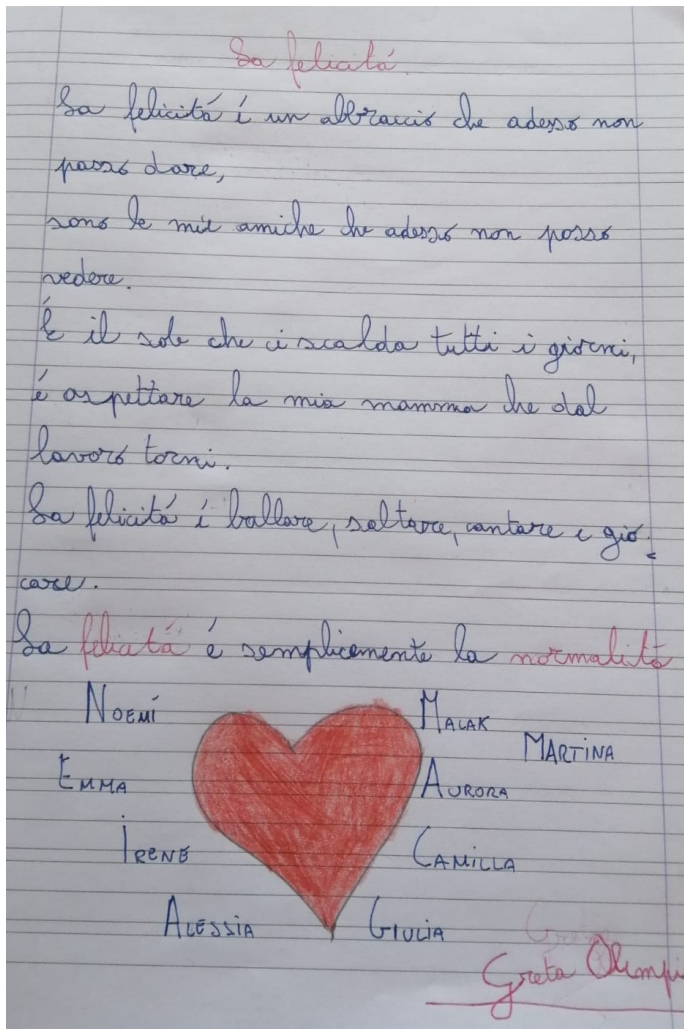 La felicitá
La felicitá é un abbraccio che adesso non
posso dare,
sono le mie amiche che adesso non posso
vedere.
É il sole che ci scalda tutti i giorni,
é aspettare la mia mamma che dal
lavoro torni.
La felicitá é ballare, saltare, cantare e gio-
care.
La felicitá é semplicemente la normalitá
NOEMÍ MALAK
MARTINA
EMMA AURORA
IRENE CAMILLA
ALESSIA GIULIA
Greta Olimpi